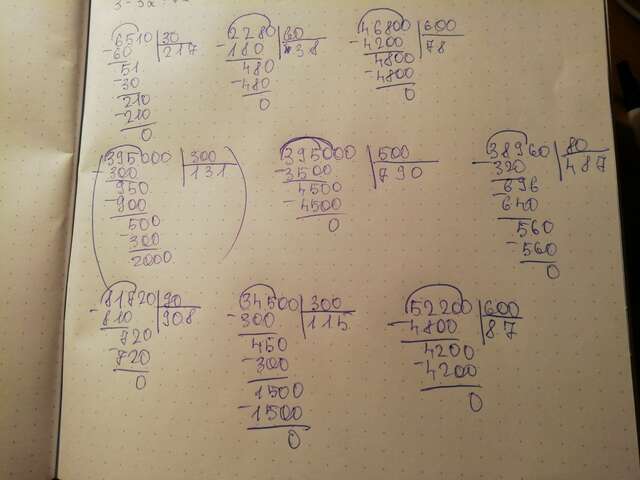 6510 30 2280 60 46800 600
-60 217 -180 38 -4200 78
51 480 4800
-30 -480 -4800
210 0 0
-210
0
395000 300 395000 500 38960 80
-300 131 -3500 790 -320 487
950 4500 696
-900 -4500 -640
500 0 560
-300 -560
2000 0
81720 90 34500 300 52200 600
-810 908 -300 115 -4800 87
720 450 4200
-720 -300 -4200
0 1500 0
-1500
0